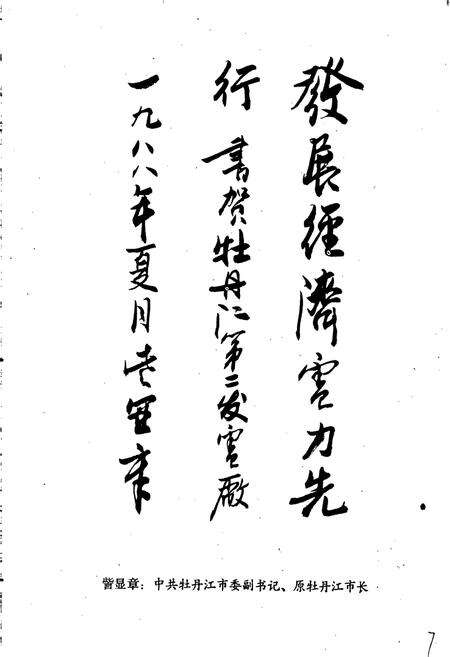 發展經濟電力先
行 書贺牡丹江第二发電厰
一九八八年夏月訾显章
訾显章：中共牡丹江市委副书记、原牡丹江市长
7